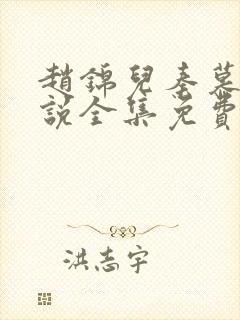 趙錦兒秦慕
說全集免費
洪志宇